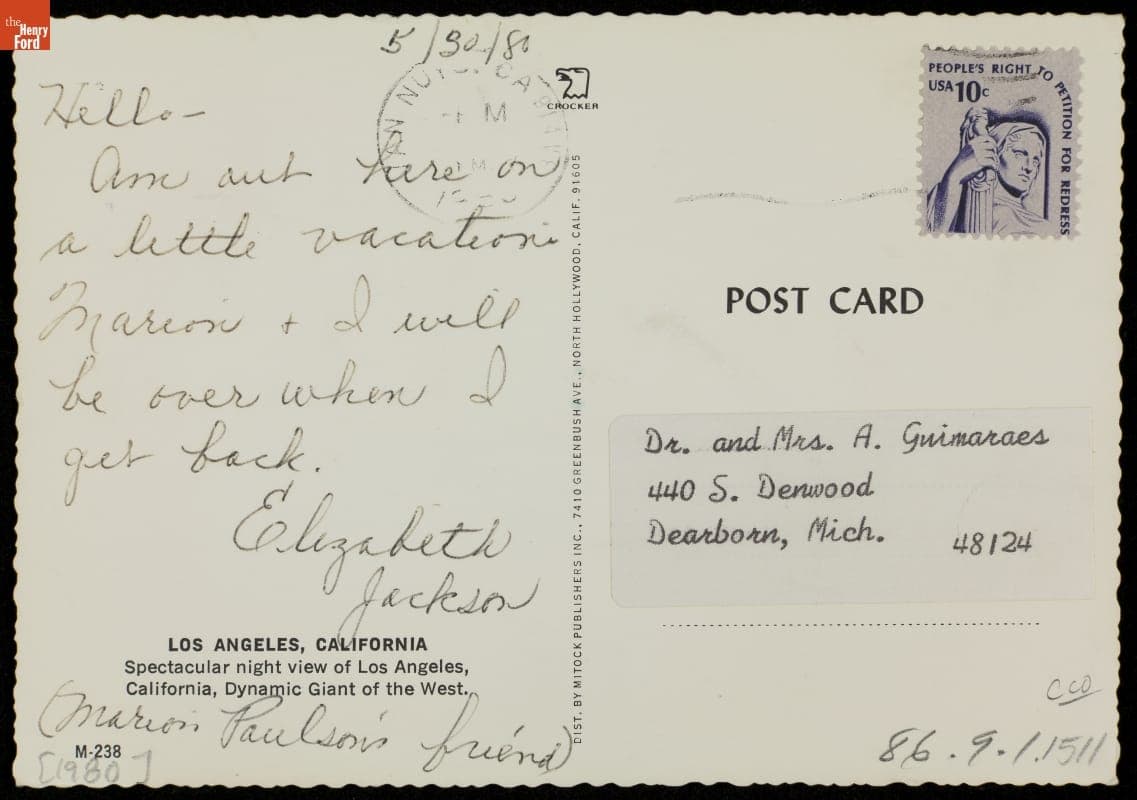 the
Henry
Ford
5/30/80
Hello-
Am out here on
a little vacation.
Marion + I will
be over when I
get back.
Elizabeth
Jackson
LOS ANGELES, CALIFORNIA
Spectacular night view of Los Angeles,
California, Dynamic Giant of the West.
(Marion Paulson's friend)
M-238
[1980]
VAN NUYS, CA
PM
1980
CROCKER
DIST. BY MITOCK PUBLISHERS INC., 7410 GREENBUSH AVE., NORTH HOLLYWOOD, CALIF. 91605
PEOPLE'S RIGHT TO PETITION FOR REDRESS
USA 10c
POST CARD
Dr. and Mrs. A. Guimaraes
440 S. Denwood
Dearborn, Mich. 48124
86.9.1.1511